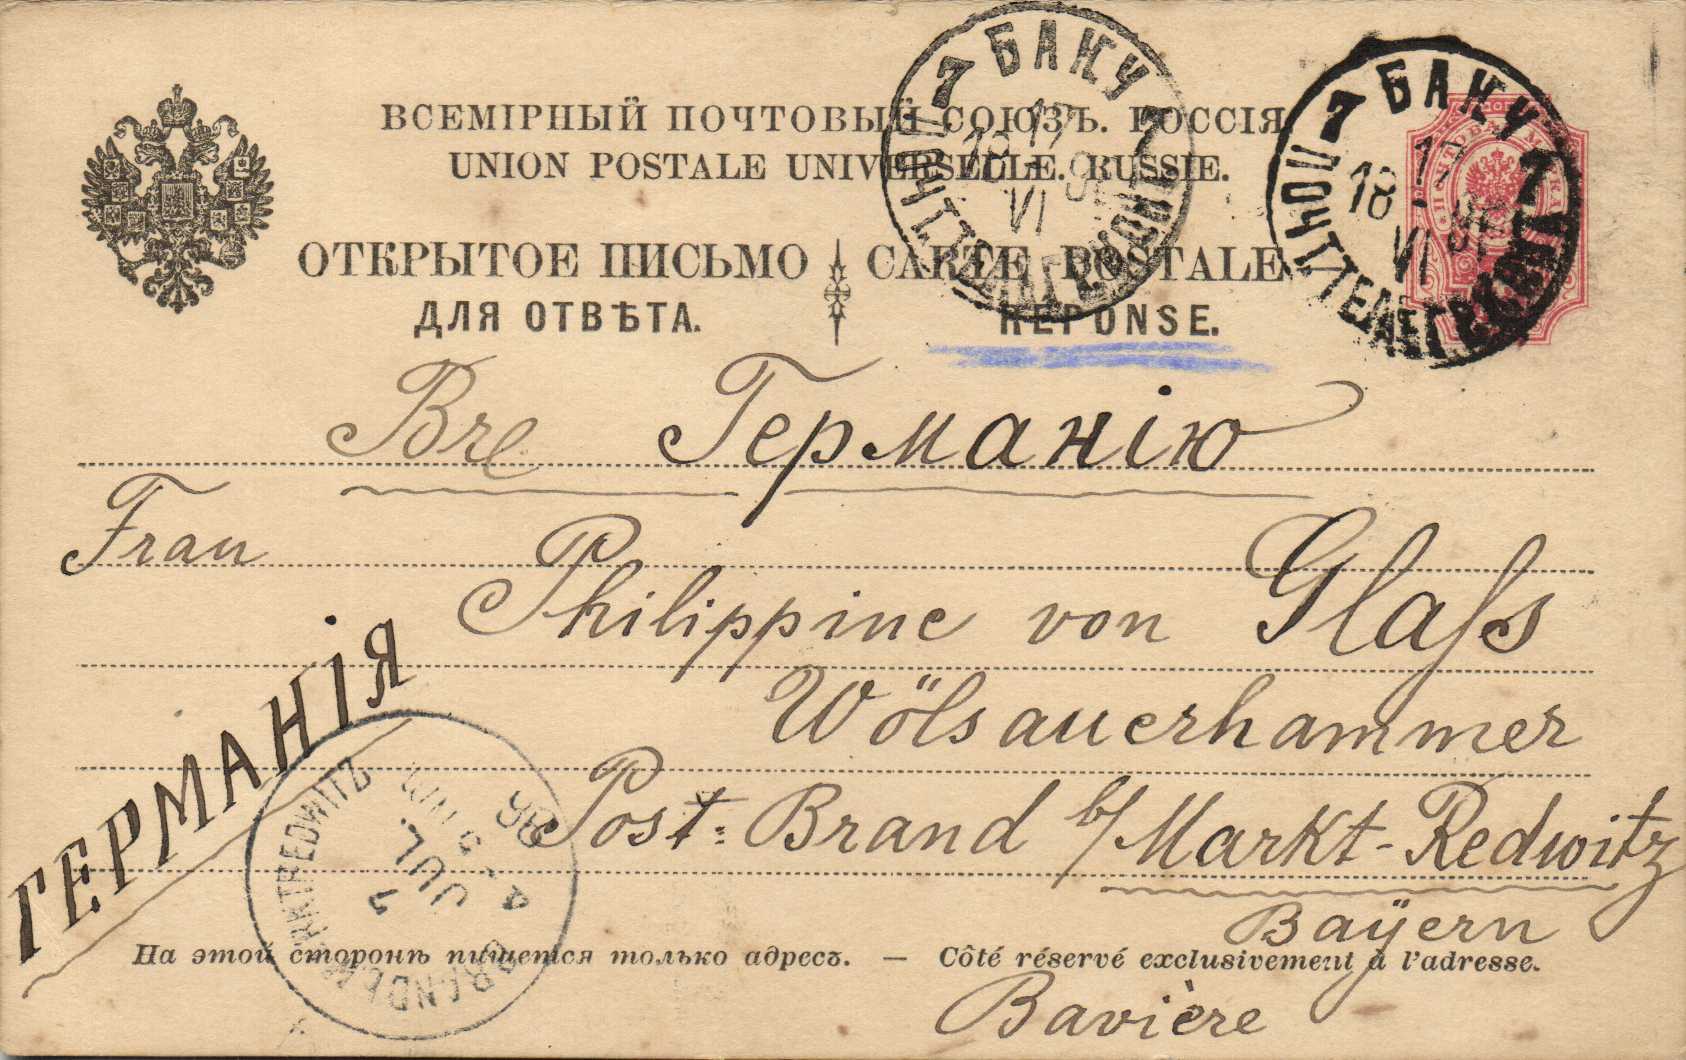 ВСЕМІРНЫЙ ПОЧТОВЫЙ СОЮЗЪ. РОССІЯ
UNION POSTALE UNIVERSELLE. RUSSIE.
ОТКРЫТОЕ ПИСЬМО
CARTE POSTALE
ДЛЯ ОТВѢТА.
RÉPONSE.
7 БАКУ 7
17
18 VI 96
7 БАКУ 7
17
18 VI 96
Германію
Frau
Philippine von Glaſs
Wölsauerhammer
Post: Brand b/ Markt-Redwitz
Baÿern
Bavière
ГЕРМАНІЯ
BRAND b. MARKTREDWITZ
JUL
96
На этой сторонѣ пишется только адресъ. — Côté réservé exclusivement à l'adresse.